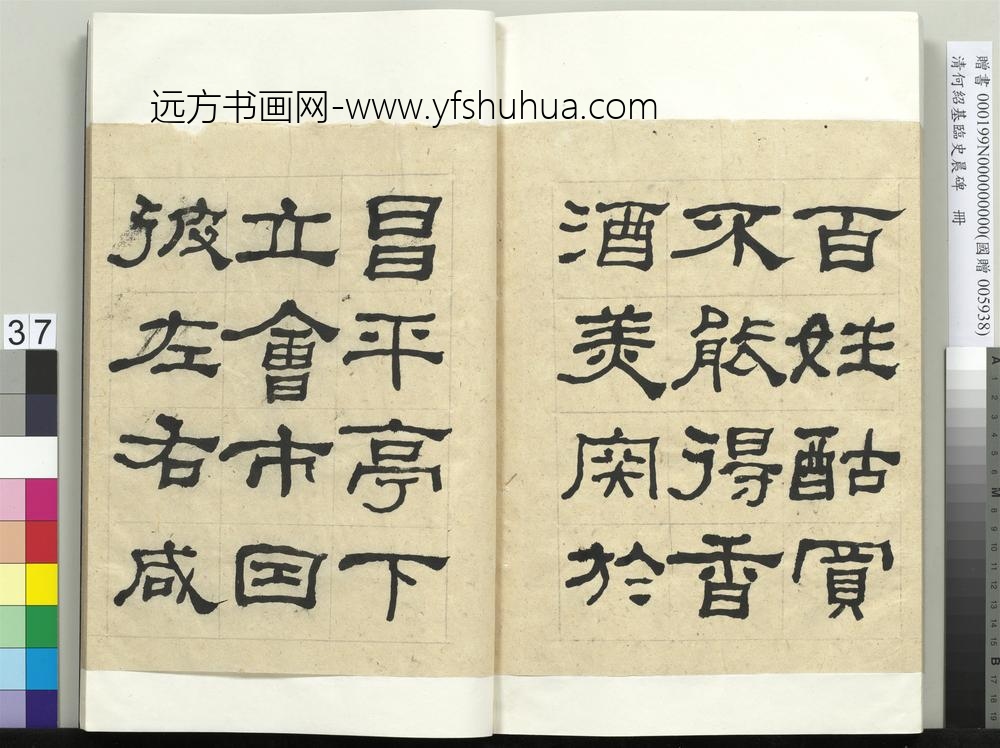 远方书画网-www.yfshuhua.com
百姓酤買
不能得香
酒美宍於
昌平亭下
立會市因
彼左右咸
贈書 000199N000000000(國贈 005938)
清何紹基臨史晨碑 冊
37
A 1 2 3 4 5 6 M 8 9 10 11 12 13 14 15 B 17 18 19